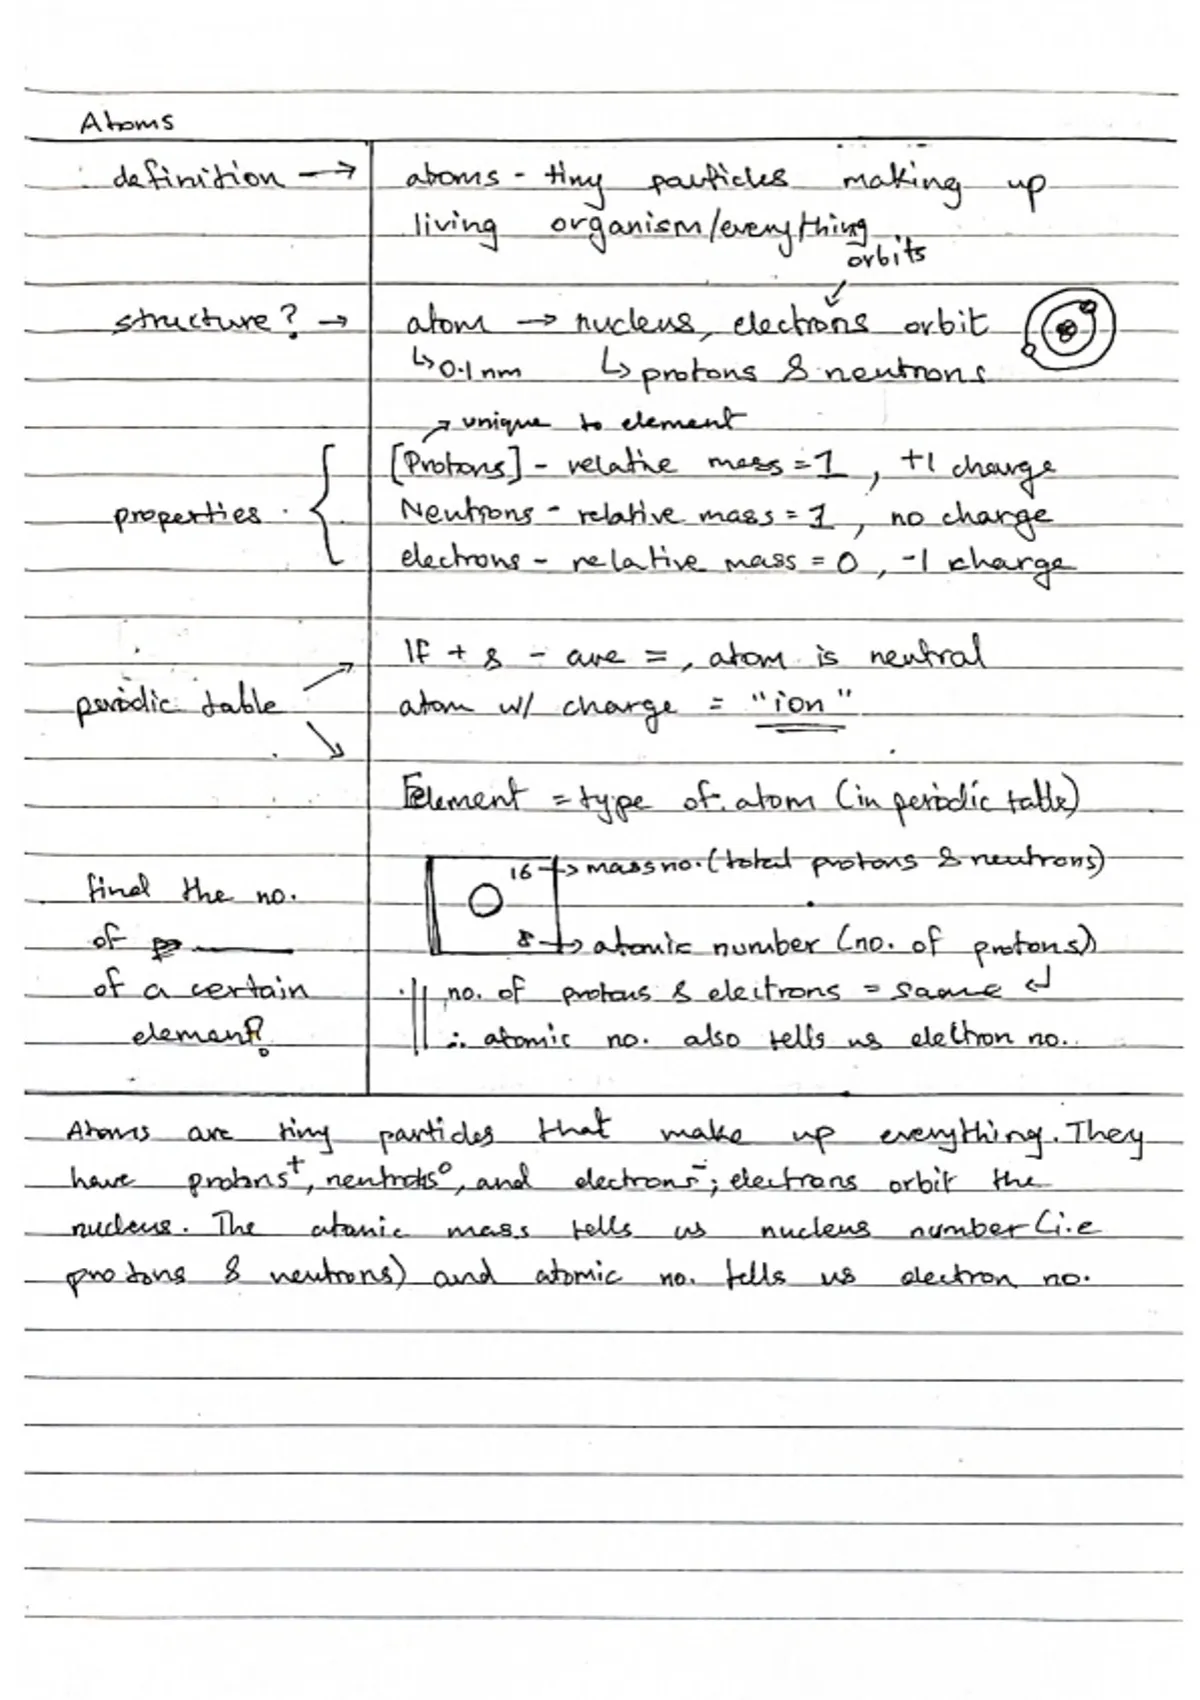 Atoms
definition → atoms - tiny particles making up
living organism/everything
orbits
structure? → atom → nucleus, electrons orbit
↳ 0.1 nm ↳ protons & neutrons
↗ unique to element
[Protons] - relative mass = 1, +1 charge
properties { Neutrons - relative mass = 1, no charge
electrons - relative mass = 0, -1 charge
If + & - are =, atom is neutral
periodic table atom w/ charge = "ion"
Element = type of atom (in periodic table)
16 → mass no. (total protons & neutrons)
find the no. O
of ____ 8 → atomic number (no. of protons)
of a certain no. of protons & electrons = same ↲
element? ∴ atomic no. also tells us electron no.
Atoms are tiny particles that make up everything. They
have protons⁺, neutrons⁰, and electrons⁻; electrons orbit the
nucleus. The atomic mass tells us nucleus number (i.e
protons & neutrons) and atomic no. tells us electron no.